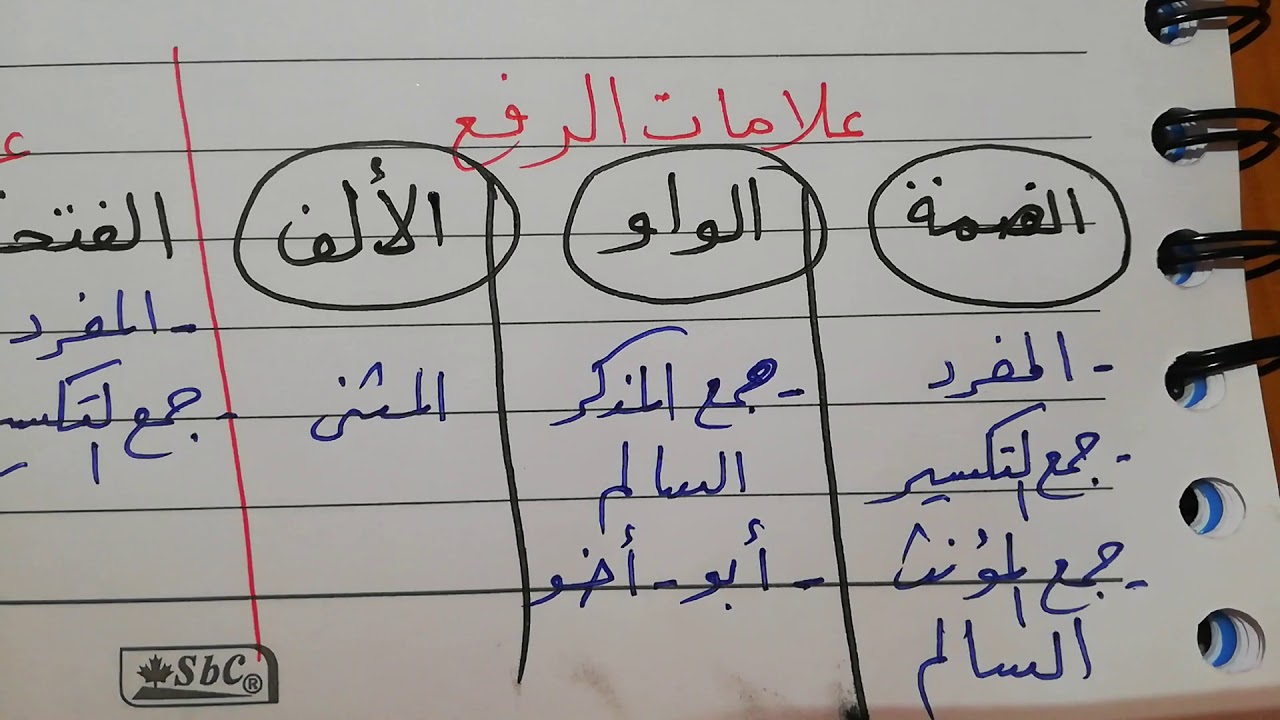 علامات الرفع
الضمة
- المفرد
- جمع التكسير
- جمع المؤنث
السالم
الواو
- جمع المذكر
السالم
- أبو - أخو
الألف
المثنى
- المفرد
- جمع
SbC®